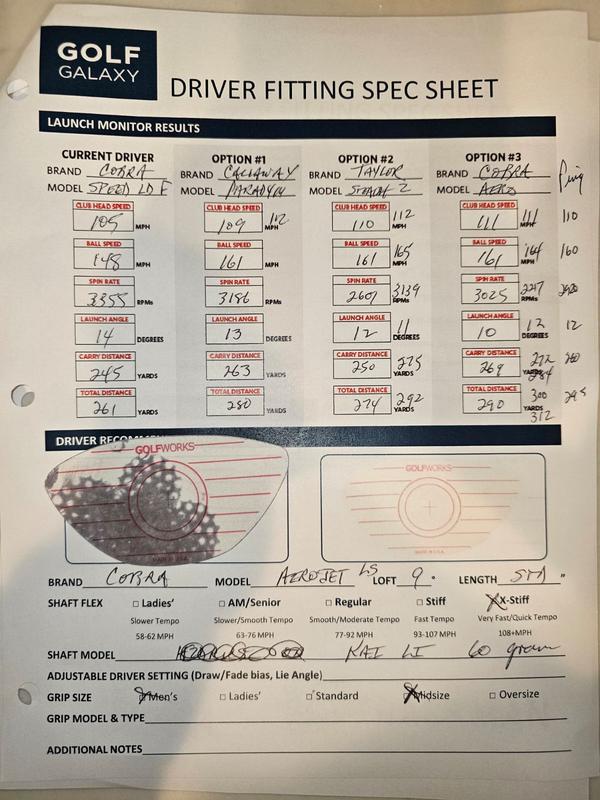 GOLF
GALAXY
DRIVER FITTING SPEC SHEET
LAUNCH MONITOR RESULTS
CURRENT DRIVER OPTION #1 OPTION #2 OPTION #3
BRAND COBRA BRAND CALLAWAY BRAND TAYLOR BRAND COBRA Ping
MODEL SPEED LD F MODEL PARADYM MODEL STEALTH 2 MODEL AERO
CLUB HEAD SPEED CLUB HEAD SPEED CLUB HEAD SPEED CLUB HEAD SPEED
105 MPH 109 112 MPH 110 112 MPH 111 111 MPH 110
BALL SPEED BALL SPEED BALL SPEED BALL SPEED
148 MPH 161 MPH 161 165 MPH 161 164 MPH 160
SPIN RATE SPIN RATE SPIN RATE SPIN RATE
3355 RPMs 3186 RPMs 2601 3139 RPMs 3025 RPMs
LAUNCH ANGLE LAUNCH ANGLE LAUNCH ANGLE LAUNCH ANGLE
14 DEGREES 13 DEGREES 12 11 DEGREES 10 12 DEGREES 12
CARRY DISTANCE CARRY DISTANCE CARRY DISTANCE CARRY DISTANCE
245 YARDS 263 YARDS 250 275 YARDS 269 272 YARDS 284
TOTAL DISTANCE TOTAL DISTANCE TOTAL DISTANCE TOTAL DISTANCE
261 YARDS 280 YARDS 274 292 YARDS 290 300 YARDS 312 295
DRIVER RECOMM
GOLFWORKS GOLFWORKS
MADE IN U.S.A. MADE IN U.S.A.
BRAND COBRA MODEL AEROJET LS LOFT 9 ° LENGTH STD "
SHAFT FLEX □ Ladies' □ AM/Senior □ Regular □ Stiff X-Stiff
Slower Tempo Slower/Smooth Tempo Smooth/Moderate Tempo Fast Tempo Very Fast/Quick Tempo
58-62 MPH 63-76 MPH 77-92 MPH 93-107 MPH 108+MPH
SHAFT MODEL KAI LI 60 gram
ADJUSTABLE DRIVER SETTING (Draw/Fade bias, Lie Angle)
GRIP SIZE Men's □ Ladies' □ Standard Midsize □ Oversize
GRIP MODEL & TYPE
ADDITIONAL NOTES